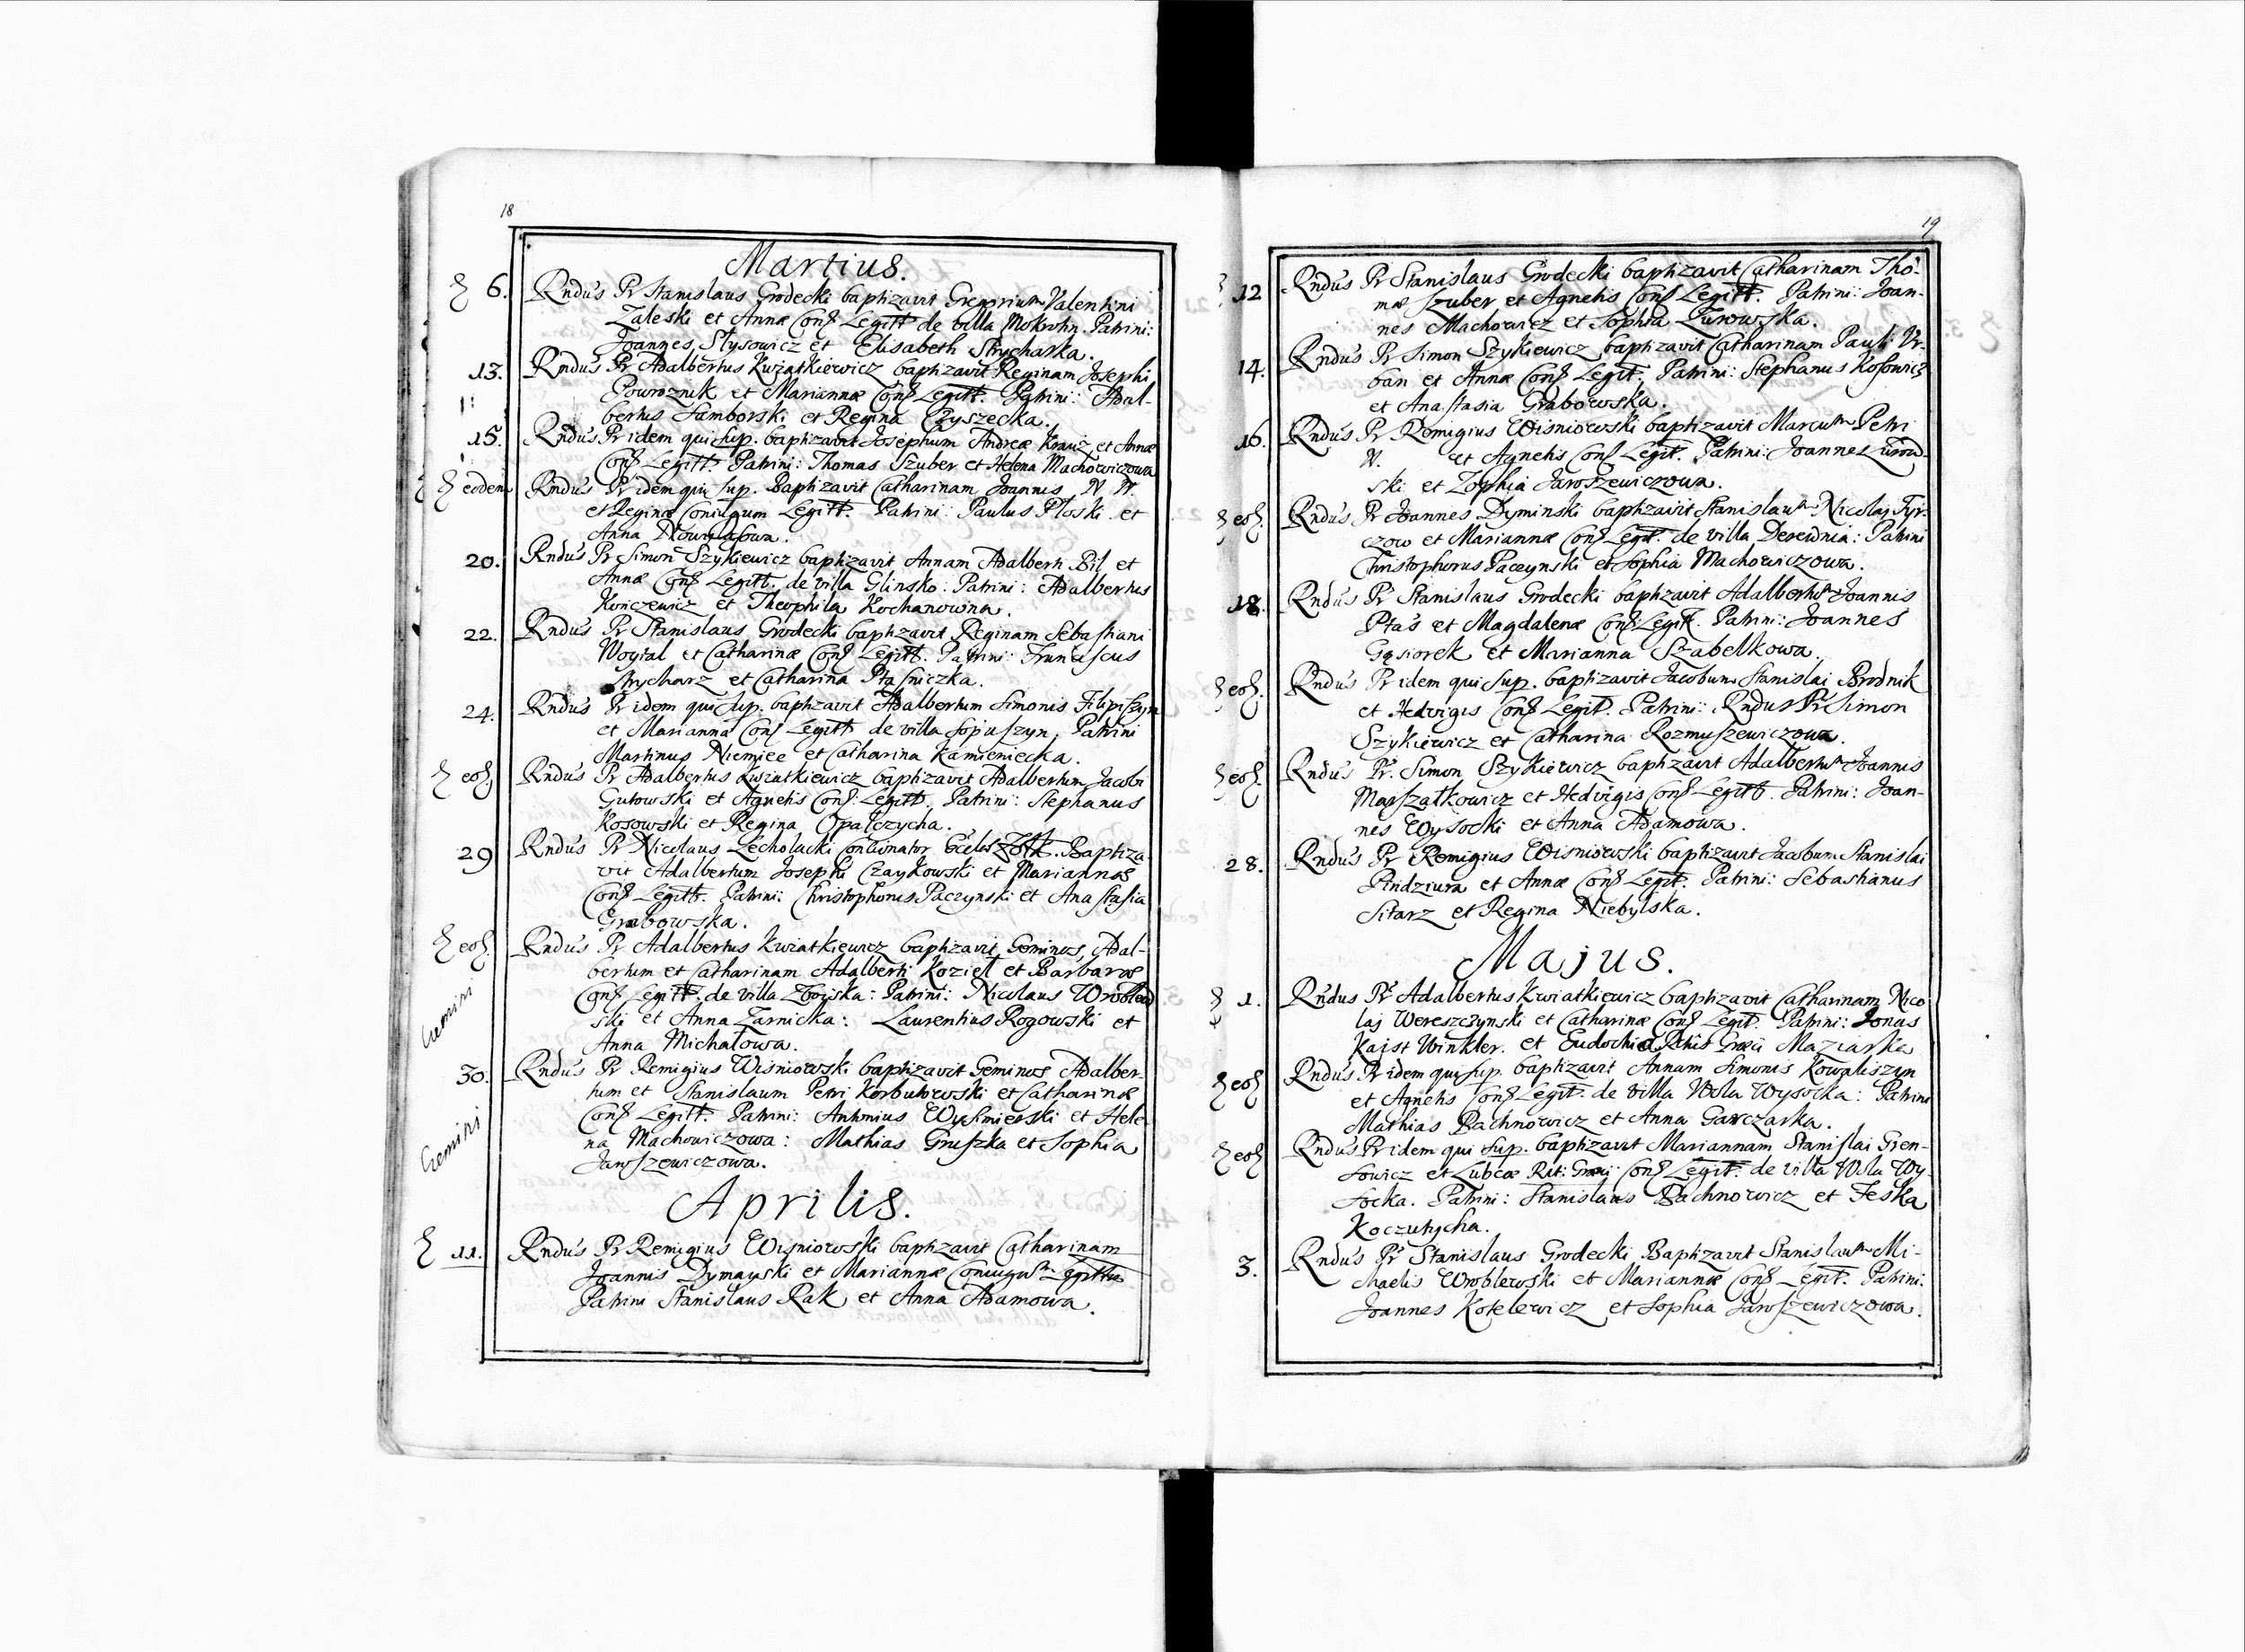 18
Martius.
6. Rndus Pr Stanislaus Grodecki baptizavit Gregorium Valentini
Zaleski et Annæ Conj Legitt de villa Mokrotin. Patrini:
Joannes Stysowicz et Elisabeth Strycharka.
13. Rndus Pr Adalbertus Kwiatkiewicz baptizavit Reginam Josephi
Powroznik et Mariannæ Conj Legitt. Patrini: Adal-
bertus Samborski et Regina Czyszecka.
15. Rndus Pr idem qui sup. baptizavit Josephum Andreæ Krauz et Annæ
Conj Legitt. Patrini: Thomas Szuber et Helena Machowiczowa
eodem Rndus Pr idem qui sup. Baptizavit Catharinam Joannis N. N.
et Reginæ Coniugum Legitt. Patrini: Paulus Ploski et
Anna
20. Rndus Pr Simon Szykiewicz baptizavit Annam Adalberti Bil et
Annæ Conj Legitt. de villa Glinsko. Patrini: Adalbertus
et Theophila Kochanowna.
22. Rndus Pr Stanislaus Grodecki baptizavit Reginam Sebastiani
Woytal et Catharinæ Conj Legitt. Patrini: Franciscus
Strycharz et Catharina Ptasniczka.
24. Rndus Pr idem qui sup. baptizavit Adalbertum Simonis Filipiszyn
et Marianna Conj Legitt de villa Sopuszyn, Patrini
Martinus Niemiec et Catharina Kamieniecka.
eod. Rndus Pr Adalbertus Kwiatkiewicz baptizavit Adalbertum Jacobi
Gutowski et Agnetis Conj: Legitt. Patrini: Stephanus
Kosowski et Regina Opalczycha.
29 Rndus Pr Nicolaus Lecholacki Concinator Eccles Zolk. Baptiza-
vit Adalbertum Josephi Czaykowski et Mariannæ
Conj Legitt. Patrini: Christophorus Paczynski et Anastasia
Grabowska.
eod. Rndus Pr Adalbertus Kwiatkiewicz baptizavit Geminos, Adal-
bertum et Catharinam Adalberti Koziel et Barbaræ
Gemini Conj Legitt. de villa Zboiska: Patrini: Nicolaus Wroblew
ski et Anna Zarnicka: Laurentius Rogowski et
Anna Michalowa.
30. Rndus Pr Remigius Wisniowski baptizavit Geminos Adalber-
tum et Stanislaum Petri Korbutowski et Catharinæ
Gemini Conj Legitt. Patrini: Antonius Wysimierski et Hele-
na Machowiczowa: Mathias Gruszka et Sophia
Jaroszewiczowa.
Aprilis.
11. Rndus Pr Remigius Wisniowski baptizavit Catharinam
Joannis Dymayski et Mariannæ Coniugum Legitto
Patrini Stanislaus Rak et Anna Adamowa.
19
12 Rndus Pr Stanislaus Grodecki baptizavit Catharinam Tho-
mæ Szuber et Agnetis Conj Legitt. Patrini: Joan-
nes Machowicz et Sophia Zurowska.
14. Rndus Pr Simon Szykiewicz baptizavit Catharinam Pauli Ur-
ban et Annæ Conj Legit. Patrini: Stephanus Kosowicz
et Anastasia Grabowska.
16. Rndus Pr Remigius Wisniowski baptizavit Marcum Petri
N. et Agnetis Conj Legit. Patrini: Joannes Zurow-
ski et Zophia Jaroszewiczowa.
eod. Rndus Pr Joannes Dyminski baptizavit Stanislaum Nicolaj Tyr-
czow et Mariannæ Conj Legit. de villa Derewnia: Patrini
Christophorus Paczynski et Sophia Machowiczowa.
18. Rndus Pr Stanislaus Grodecki baptizavit Adalbertum Joannis
Ptas et Magdalenæ Conj: Legitt. Patrini: Joannes
Gęsiorek et Marianna Szabelkowa.
eod. Rndus Pr idem qui sup. baptizavit Jacobum Stanislai Brodnik
et Hedvigis Conj Legit. Patrini: Rndus Pr Simon
Szykiewicz et Catharina Rozmuszewiczowa.
eod. Rndus Pr. Simon Szykiewicz baptizavit Adalbertum Joannis
Marszałkowicz et Hedvigis Conj Legitt. Patrini: Joan-
nes Wysocki et Anna Adamowa.
28. Rndus Pr Remigius Wisniowski baptizavit Jacobum Stanislai
Pindziura et Annæ Conj Legit. Patrini: Sebastianus
Sitarz et Regina Niebylska.
Majus.
1. Rndus Pr Adalbertus Kwiatkiewicz baptizavit Catharinam Nico
laj Wereszczynski et Catharinæ Conj Legit. Patrini: Jonas
Kajst Winkler. et Eudochia Ritus Græci Maziarka
eod Rndus Pr idem qui sup. baptizavit Annam Simonis Kowaliszyn
et Agnetis Conj Legit. de villa Wola Wysocka: Patrini
Mathias Bachnowicz et Anna Garczarka.
eod Rndus Pr idem qui sup. baptizavit Mariannam Stanislai Gren-
Sowicz et Lubcæ Rit: Græci Conj Legit. de villa Wola Wy-
socka. Patrini: Stanislaus Bachnowicz et Feska
Koczutycha.
3. Rndus Pr Stanislaus Grodecki Baptizavit Stanislaum Mi-
chaelis Wroblewski et Mariannæ Conj Legit. Patrini.
Joannes Kotelewicz et Sophia Jaroszewiczowa.